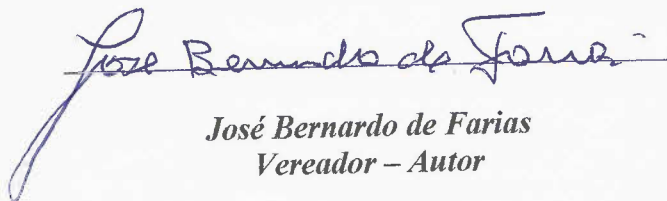 José Bernardo de Farias
José Bernardo de Farias
Vereador – Autor